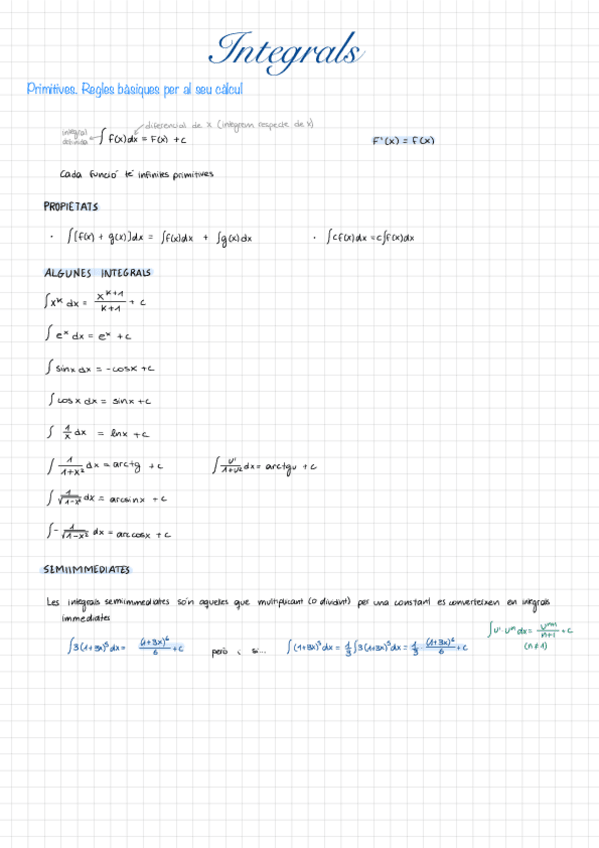 Integrals
Primitives. Regles bàsiques per al seu càlcul
diferencial de x (integram respecte de x)
integral definida = ∫ f(x)dx = F(x) + c    F'(x) = f(x)
Cada funció té infinites primitives
PROPIETATS
· ∫[f(x) + g(x)]dx = ∫f(x)dx + ∫g(x)dx    · ∫cf(x)dx = c∫f(x)dx
ALGUNES INTEGRALS
∫x^k dx = x^(k+1)/(k+1) + c
∫e^x dx = e^x + c
∫sinx dx = -cosx + c
∫cos x dx = sinx + c
∫ 1/x dx = lnx + c
∫ 1/(1+x²) dx = arctg + c    ∫ u'/(1+u²) dx = arctgu + c
∫ 1/√(1-x²) dx = arcsinx + c
∫- 1/√(1-x²) dx = arccosx + c
SEMIIMMEDIATES
Les integrals semiimmediates són aquelles que multiplicant (o dividint) per una constant es converteixen en integrals
immediates
∫3(1+3x)⁵dx = (1+3x)⁶/6 + c    però i si...    ∫(1+3x)⁵dx = 1/3 ∫3(1+3x)⁵dx = 1/3 · (1+3x)⁶/6 + c    ∫u'·uⁿ dx = u^(n+1)/(n+1) + c
(n≠1)